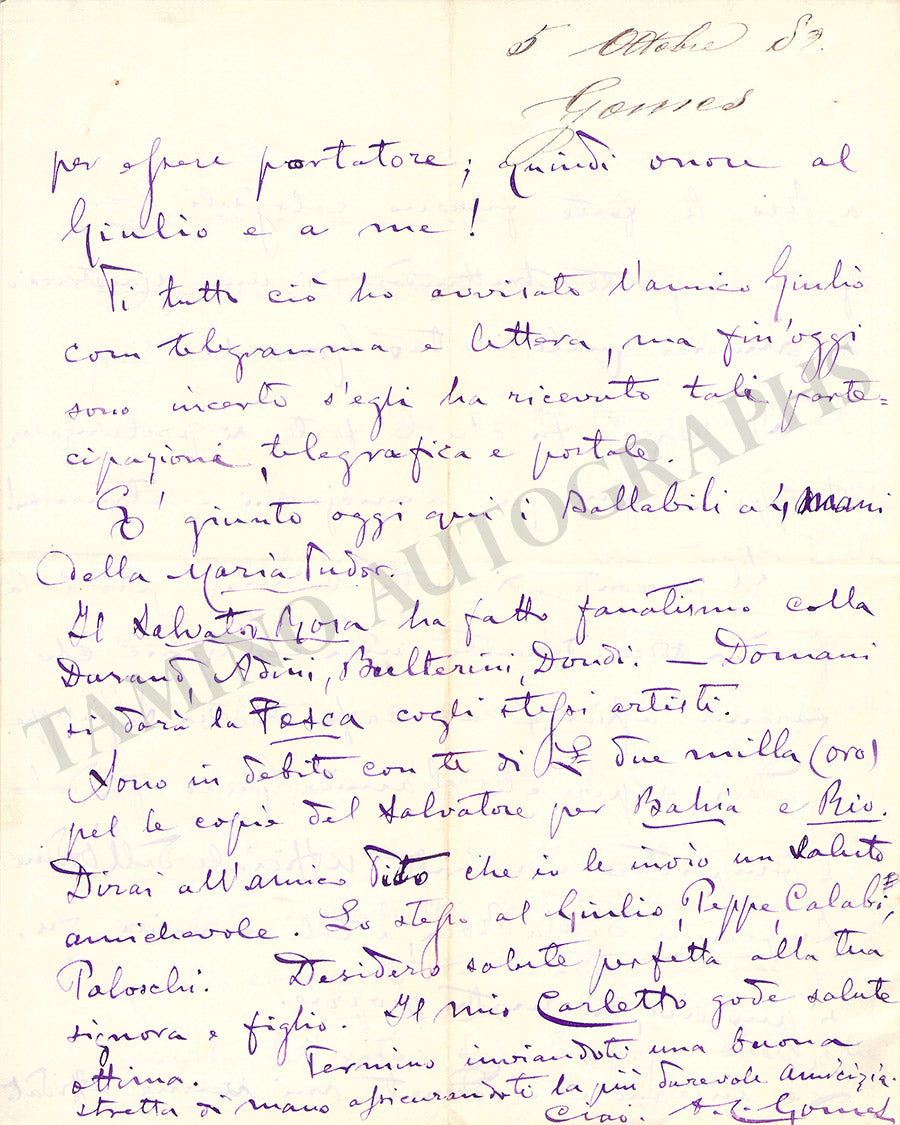 5 Ottobre 83.
Gomes
per essere portatore; quindi onore al
Giulio e a me!
Di tutto ciò ho avvisato l'amico Giulio
com telegramma e lettera, ma fin'oggi
sono incerto s'egli ha ricevuto tali parte=
cipazioni, telegrafica e portale.
È giunto oggi qui i Ballabili a 4 mani
della Maria Tudor.
Il Salvator Rosa ha fatto fanatismo colla
Durand, Adini, Bulterini, Dondi. — Domani
si darà la Fosca cogli stessi artisti.
Sono in debito con te di due milla (oro)
pel le copie del Salvatore per Bahia e Rio.
Dirai all'amico Tito che io le invio un saluto
amichevole. Lo stesso al Giulio, Peppe, Calabi,
Paloschi. Desidero salute perfetta alla tua
signora e figlio. Il mio Carletto gode salute
ottima. Termino inviandoti una buona
stretta di mano assicurandoti la più durevole amicizia.
Ciao. A. C. Gomes
TAMINO AUTOGRAPHS